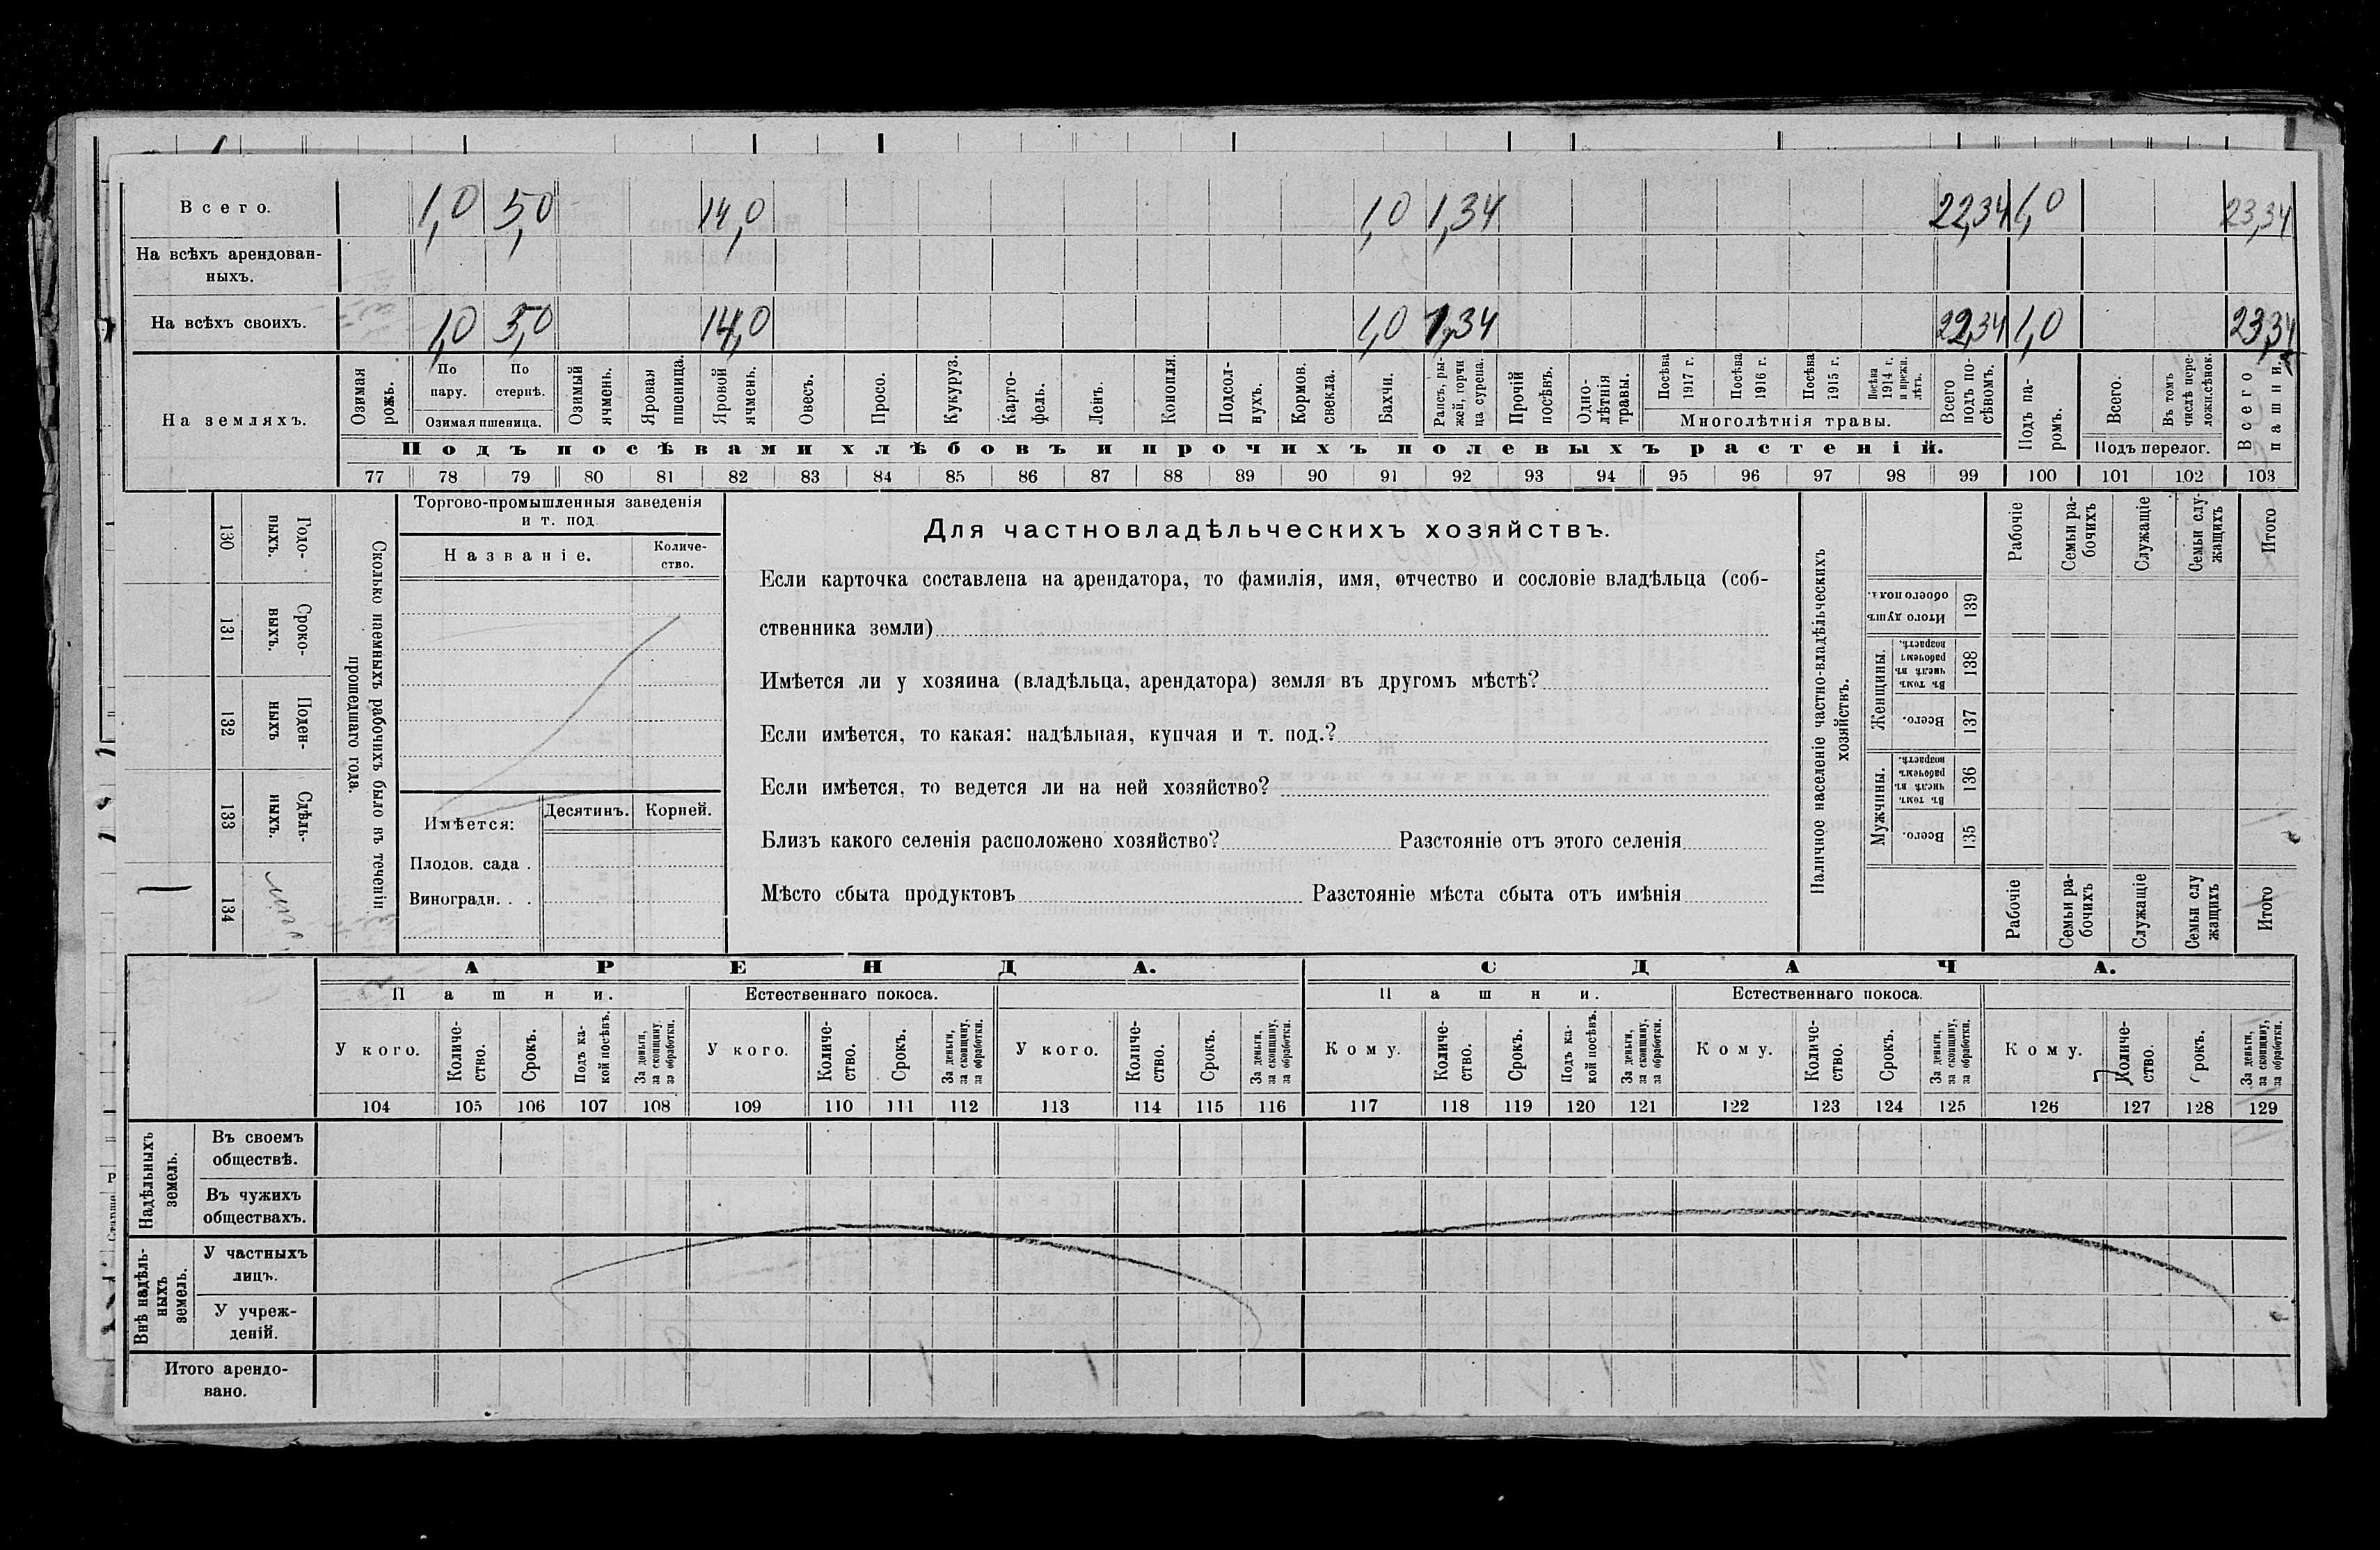 Всего. 1,0 5,0 14,0 1,0 1,34 22,34 1,0 23,34
На всѣхъ арендован-
ныхъ.
На всѣхъ своихъ. 1,0 5,0 14,0 1,0 1,34 22,34 1,0 23,34
На земляхъ.
Озимая рожь.
По пару.
По стернѣ.
Озимая пшеница.
Озимый ячмень.
Яровая пшеница.
Яровой ячмень.
Овесъ.
Просо.
Кукуруз.
Карто-
фель.
Ленъ.
Конопля.
Подсол-
нухъ.
Кормов. свекла.
Бахчи.
Рапсъ, ры-
жей, горчи
ца сурепа.
Прочій посѣвъ.
Одно-
лѣтнія
травы.
Посѣва 1917 г.
Посѣва 1916 г.
Посѣва 1915 г.
Посѣва 1914 г. и прежн. лѣтъ.
Многолѣтнія травы.
Всего подъ по-
сѣвомъ.
Подъ посѣвами хлѣбовъ и прочихъ полевыхъ растеній.
Подъ па-
ромъ.
Всего.
Въ томъ числѣ пере-
ложн.сѣнок.
Подъ перелог.
Всего пашни.
77 78 79 80 81 82 83 84 85 86 87 88 89 90 91 92 93 94 95 96 97 98 99 100 101 102 103
130 Годо-
выхъ.
131 Сроко-
ныхъ.
132 Поден-
ныхъ
133 Сдѣль-
ныхъ.
134
Сколько наемныхъ рабочихъ было въ теченіи
прошедшаго года.
Торгово-промышленныя заведенія
и т. под
Названіе.
Количе-
ство.
Имѣется:
Десятинъ. Корней.
Плодов. сада .
Виноградн. . .
Для частновладѣльческихъ хозяйствъ.
Если карточка составлена на арендатора, то фамилія, имя, отчество и сословіе владѣльца (соб-
ственника земли)
Имѣется ли у хозяина (владѣльца, арендатора) земля въ другомъ мѣстѣ?
Если имѣется, то какая: надѣльная, купчая и т. под.?
Если имѣется, то ведется ли на ней хозяйство?
Близъ какого селенія расположено хозяйство? Разстояніе отъ этого селенія
Мѣсто сбыта продуктовъ Разстояніе мѣста сбыта отъ имѣнія
Наличное населеніе частно-владѣльческихъ
хозяйствъ.
Рабочіе
Семьи ра-
бочихъ
Служащіе
Семьи слу-
жащихъ
Итого
Итого душъ обоего пола. 139
Женщины.
Въ томъ числѣ въ рабочемъ возрастѣ. 138
Всего. 137
Мужчины.
Въ томъ числѣ въ рабочемъ возрастѣ. 136
Всего. 135
Рабочіе
Семьи ра-
бочихъ
Служащіе
Семьи слу
жащихъ
Итого
АРЕНДА. СДАЧА.
Пашни. Естественнаго покоса. Пашни. Естественнаго покоса.
У кого.
Количе-
ство.
Срокъ.
Подъ ка-
кой посѣвъ.
За деньги,
за скопщину,
за обработки.
У кого.
Количе-
ство.
Срокъ.
За деньги,
за скопщину,
за обработки.
У кого.
Количе-
ство.
Срокъ.
За деньги,
за скопщину,
за обработки.
Кому.
Количе-
ство.
Срокъ.
Подъ ка-
кой посѣвъ.
За деньги,
за скопщину,
за обработки.
Кому.
Количе-
ство.
Срокъ.
За деньги,
за скопщину,
за обработки.
Кому.
Количе-
ство.
Срокъ.
За деньги,
за скопщину,
за обработки.
104 105 106 107 108 109 110 111 112 113 114 115 116 117 118 119 120 121 122 123 124 125 126 127 128 129
Надѣльныхъ
земель.
Въ своемъ
обществѣ.
Въ чужихъ
обществахъ.
Внѣ надѣль-
ныхъ
земель.
У частныхъ
лицъ.
У учреж-
деній.
Итого арендо-
вано.